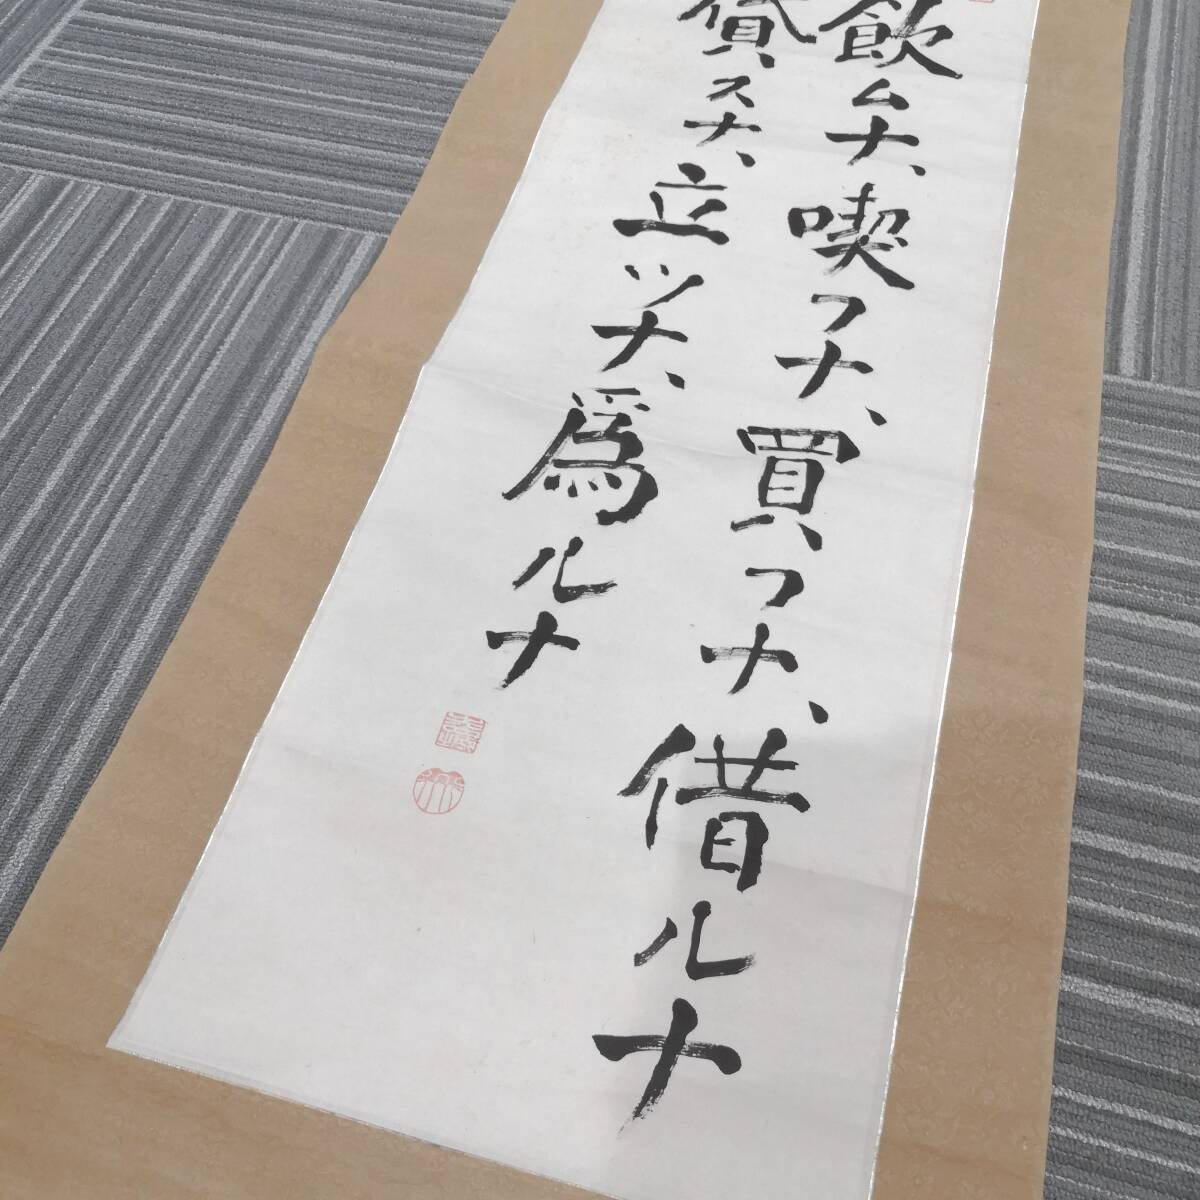 飲ムナ、喫フナ、買フナ、借ルナ
貸スナ、立ツナ、爲ルナ